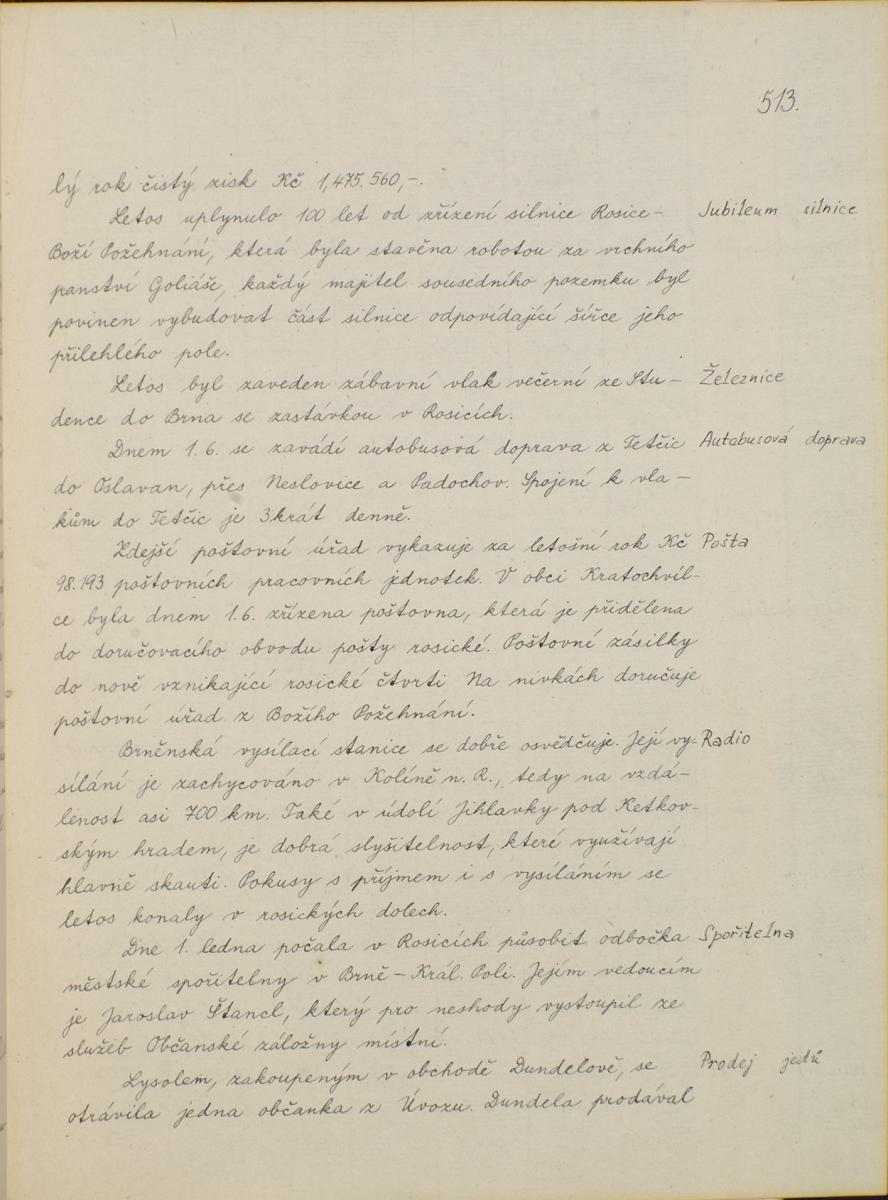 513.
lý rok čistý zisk Kč 1,475.560,-.
Letos uplynulo 100 let od zřízení silnice Rosice- Jubileum silnice
Boží Požehnání, která byla stavěna robotou za vrchního
panství Goliáše, každý majitel sousedního pozemku byl
povinen vybudovat část silnice odpovídající šířce jeho
přilehlého pole.
Letos byl zaveden zábavní vlak večerní ze Stu- Železnice
dence do Brna se zastávkou v Rosicích.
Dnem 1.6. se zavádí autobusová doprava z Tetčic Autobusová doprava
do Oslavan, přes Neslovice a Padochov. Spojení k vla-
kům do Tetčic je 3krát denně.
Zdejší poštovní úřad vykazuje za letošní rok Kč Pošta
98.193 poštovních pracovních jednotek. V obci Kratochvil-
ce byla dnem 1.6. zřízena poštovna, která je přidělena
do doručovacího obvodu pošty rosické. Poštovní zásilky
do nově vznikající rosické čtvrti Na nivkách doručuje
poštovní úřad z Božího Požehnání.
Brněnská vysílací stanice se dobře osvědčuje. Její vy- Radio
sílání je zachycováno v Kolíně n. R., tedy na vzdá-
lenost asi 700 km. Také v údolí Jihlavky pod Ketkov-
ským hradem, je dobrá slyšitelnost, které využívají
hlavně skauti. Pokusy s příjmem i s vysíláním se
letos konaly v rosických dolech.
Dne 1. ledna počala v Rosicích působit odbočka Spořitelna
městské spořitelny v Brně - Král. Poli. Jejím vedoucím
je Jaroslav Štancl, který pro neshody vystoupil ze
služeb Občanské záložny místní.
Lysolem, zakoupeným v obchodě Dundelově, se Prodej jedů
otrávila jedna občanka z Úvozu. Dundela prodával